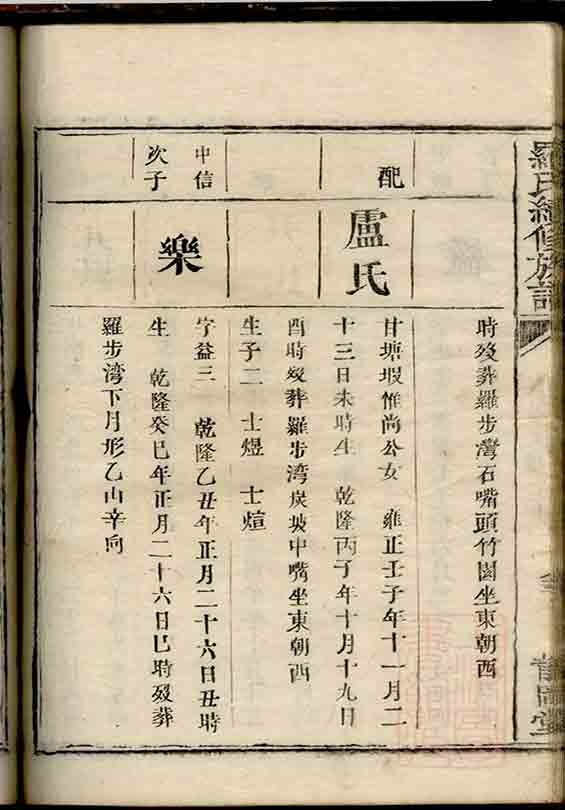 羅氏續修族譜
時歿葬羅步灣石嘴頭竹園坐東朝西
配
盧氏
甘塘瑕惟尚公女　雍正壬子年十一月二
十三日未時生　乾隆丙子年十月十九日
酉時歿葬羅步湾炭坡中嘴坐東朝西
生子二　士煜　士煊
中信
次子
樂
字益三　乾隆乙丑年正月二十六日丑時
生　乾隆癸巳年正月二十六日巳時歿葬
羅步湾下月形乙山辛向